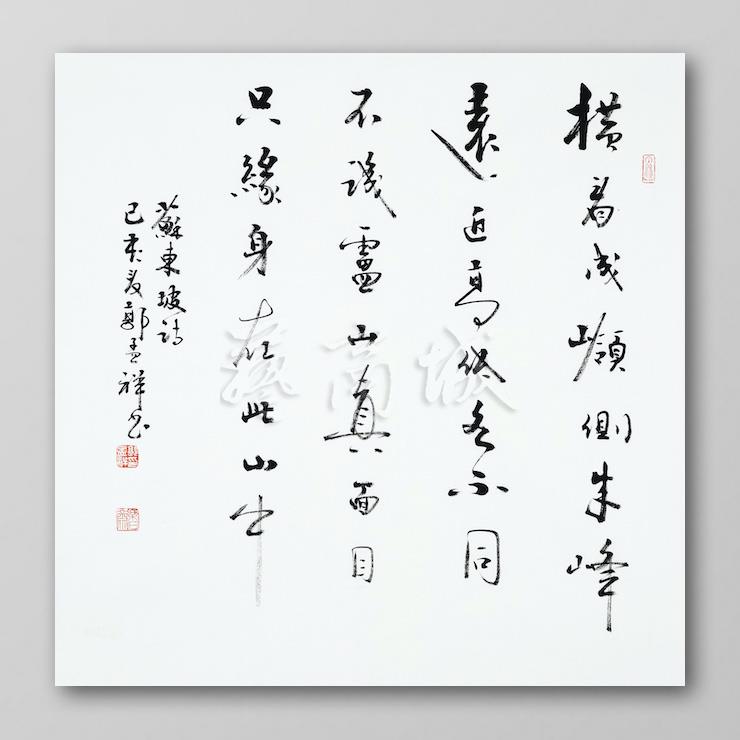 横看成嶺側成峰
遠近高低各不同
不識盧山真面目
只緣身在此山中
蘇東坡詩
己亥夏鄭孟祥書